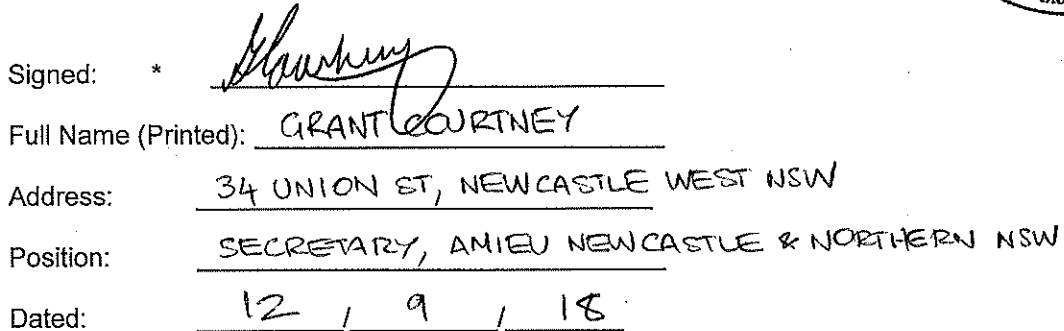 Signed: *
Full Name (Printed): GRANT COURTNEY
Address: 34 UNION ST, NEWCASTLE WEST NSW
Position: SECRETARY, AMIEU NEWCASTLE & NORTHERN NSW
Dated: 12 / 9 / 18